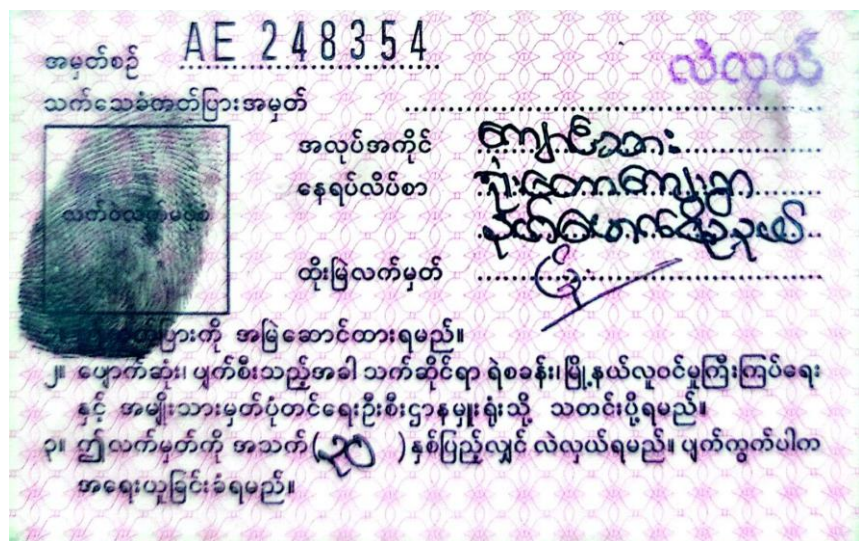 အမှတ်စဉ် AE 248354
လဲလှယ်
သက်သေခံကတ်ပြားအမှတ်
အလုပ်အကိုင် ကျောင်းသား
နေရပ်လိပ်စာ
ထိုးမြဲလက်မှတ်
ကတ်ပြားကို အမြဲဆောင်ထားရမည်။
၂။ ပျောက်ဆုံး၊ ပျက်စီးသည့်အခါ သက်ဆိုင်ရာ ရဲစခန်း၊ မြို့နယ်လူဝင်မှုကြီးကြပ်ရေး
နှင့် အမျိုးသားမှတ်ပုံတင်ရေးဦးစီးဌာနမှူးရုံးသို့ သတင်းပို့ရမည်။
၃။ ဤလက်မှတ်ကို အသက်( ) နှစ်ပြည့်လျှင် လဲလှယ်ရမည်။ ပျက်ကွက်ပါက
အရေးယူခြင်းခံရမည်။